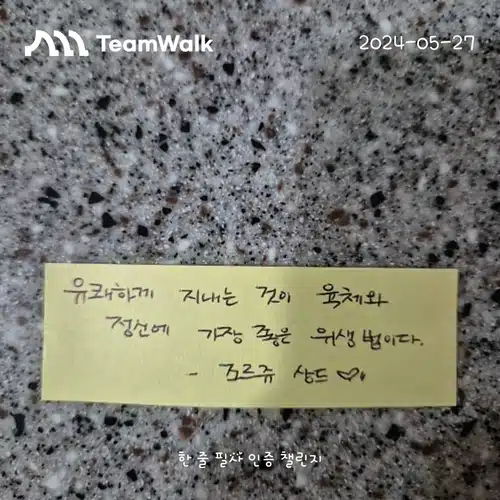 TeamWalk
2024-05-27
유쾌하게 지내는 것이 육체와
정신에 가장 좋은 위생법이다.
- 조르쥬 상드 ♡
한 줄 필사 인증 챌린지